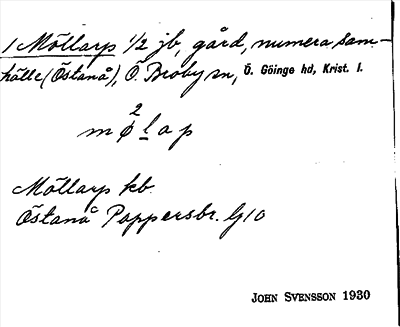 1 Möllarp 1/2 jb, gård, numera sam-
hälle (Östanå), Ö. Broby sn, Ö. Göinge hd, Krist. l.
2
m ø l a p
Möllarp kb.
Östanå Pappersbr. G10
JOHN SVENSSON 1930